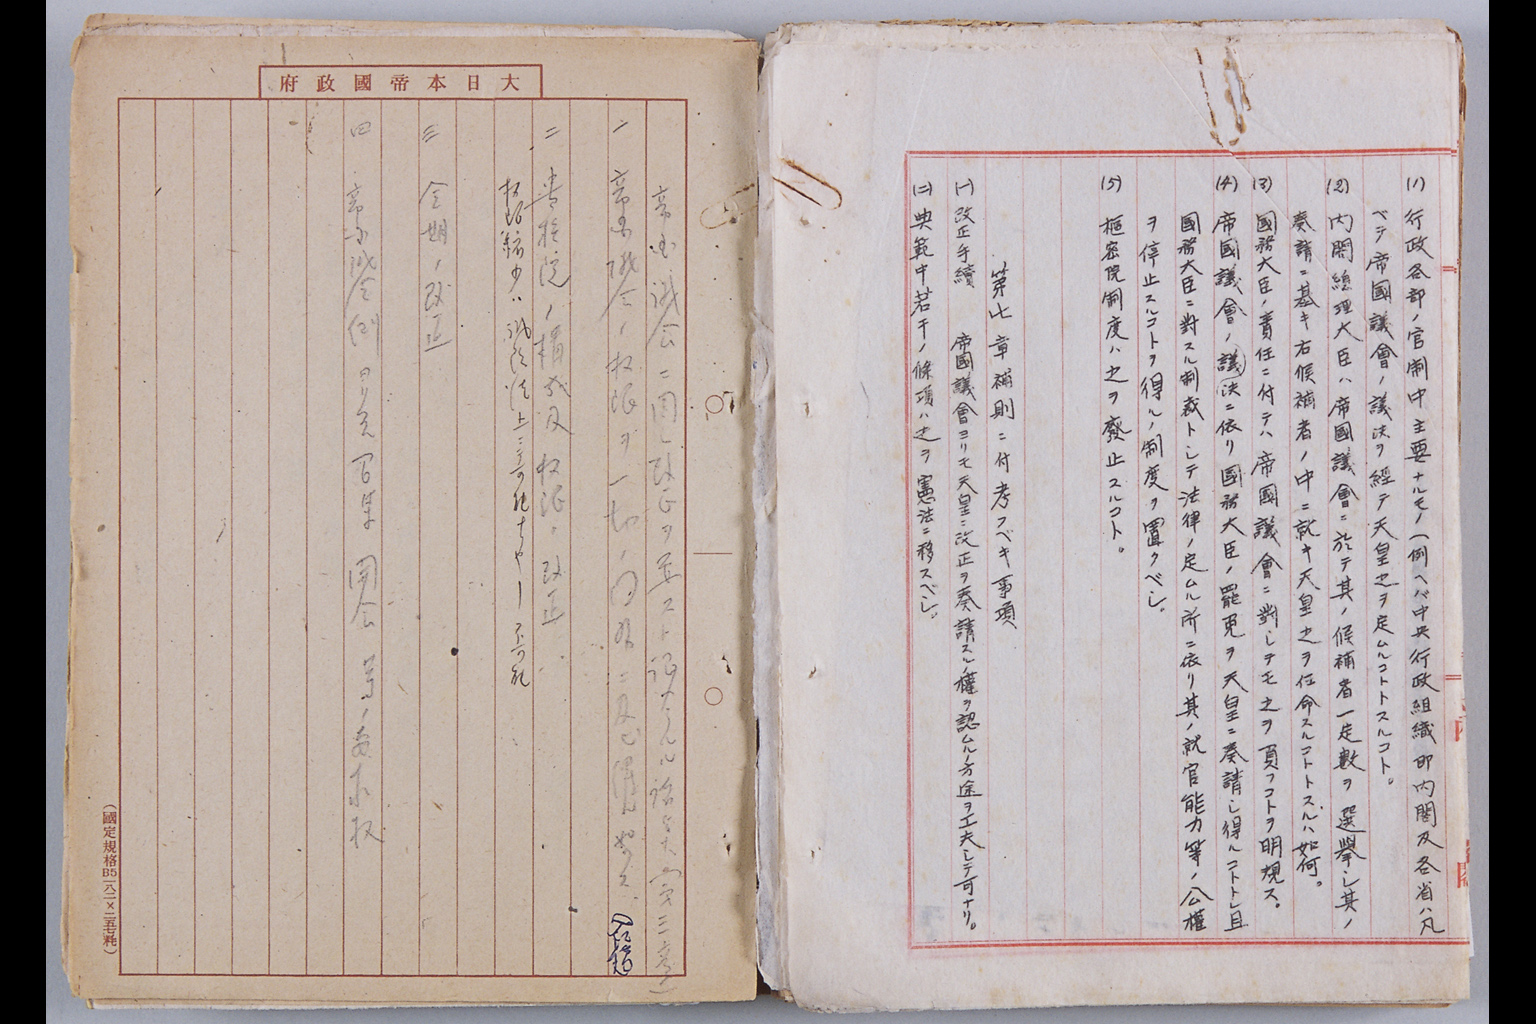 (1) 行政各部ノ官制中主要ナルモノ(例ヘバ中央行政組織即内閣及各省)ハ凡
ベテ帝國議會ノ議決ヲ經テ天皇之ヲ定ムルコトトスルコト。
(2) 内閣總理大臣ハ帝國議會ニ於テ其ノ候補者一定數ヲ選擧シ其ノ
奏請ニ基キ右候補者ノ中ニ就キ天皇之ヲ任命スルコトトスルハ如何。
(3) 國務大臣ノ責任ニ付テハ帝國議會ニ對シテモ之ヲ負フコトヲ明規ス。
(4) 帝國議會ノ議決ニ依リ國務大臣ノ罷免ヲ天皇ニ奏請シ得ルコトトシ且
國務大臣ニ對スル制裁トシテ法律ノ定ムル所ニ依リ其ノ就官能力等ノ公權
ヲ停止スルコトヲ得ルノ制度ヲ置クベシ。
(5) 樞密院制度ハ之ヲ廢止スルコト。
第七章補則ニ付考フベキ事項
(一) 改正手續 帝國議會ヨリモ天皇ニ改正ヲ奏請スルノ權ヲ認ムルノ方途ヲ工夫シテ可ナリ。
(二) 典範中若干ノ條項ハ之ヲ憲法ニ移スベシ。
大日本帝國政府
帝国議会ニ関シ改正ヲ要スト認メラルル諸点(第三章)
一 帝国議会ノ権限ヲ一切ノ
二 貴族院ノ構成及権限ノ改正
三 会期ノ改正
四 帝国議会側ヨリスル召集 開会等ノ要求権
(國定規格B5 一八二×二五七粍)